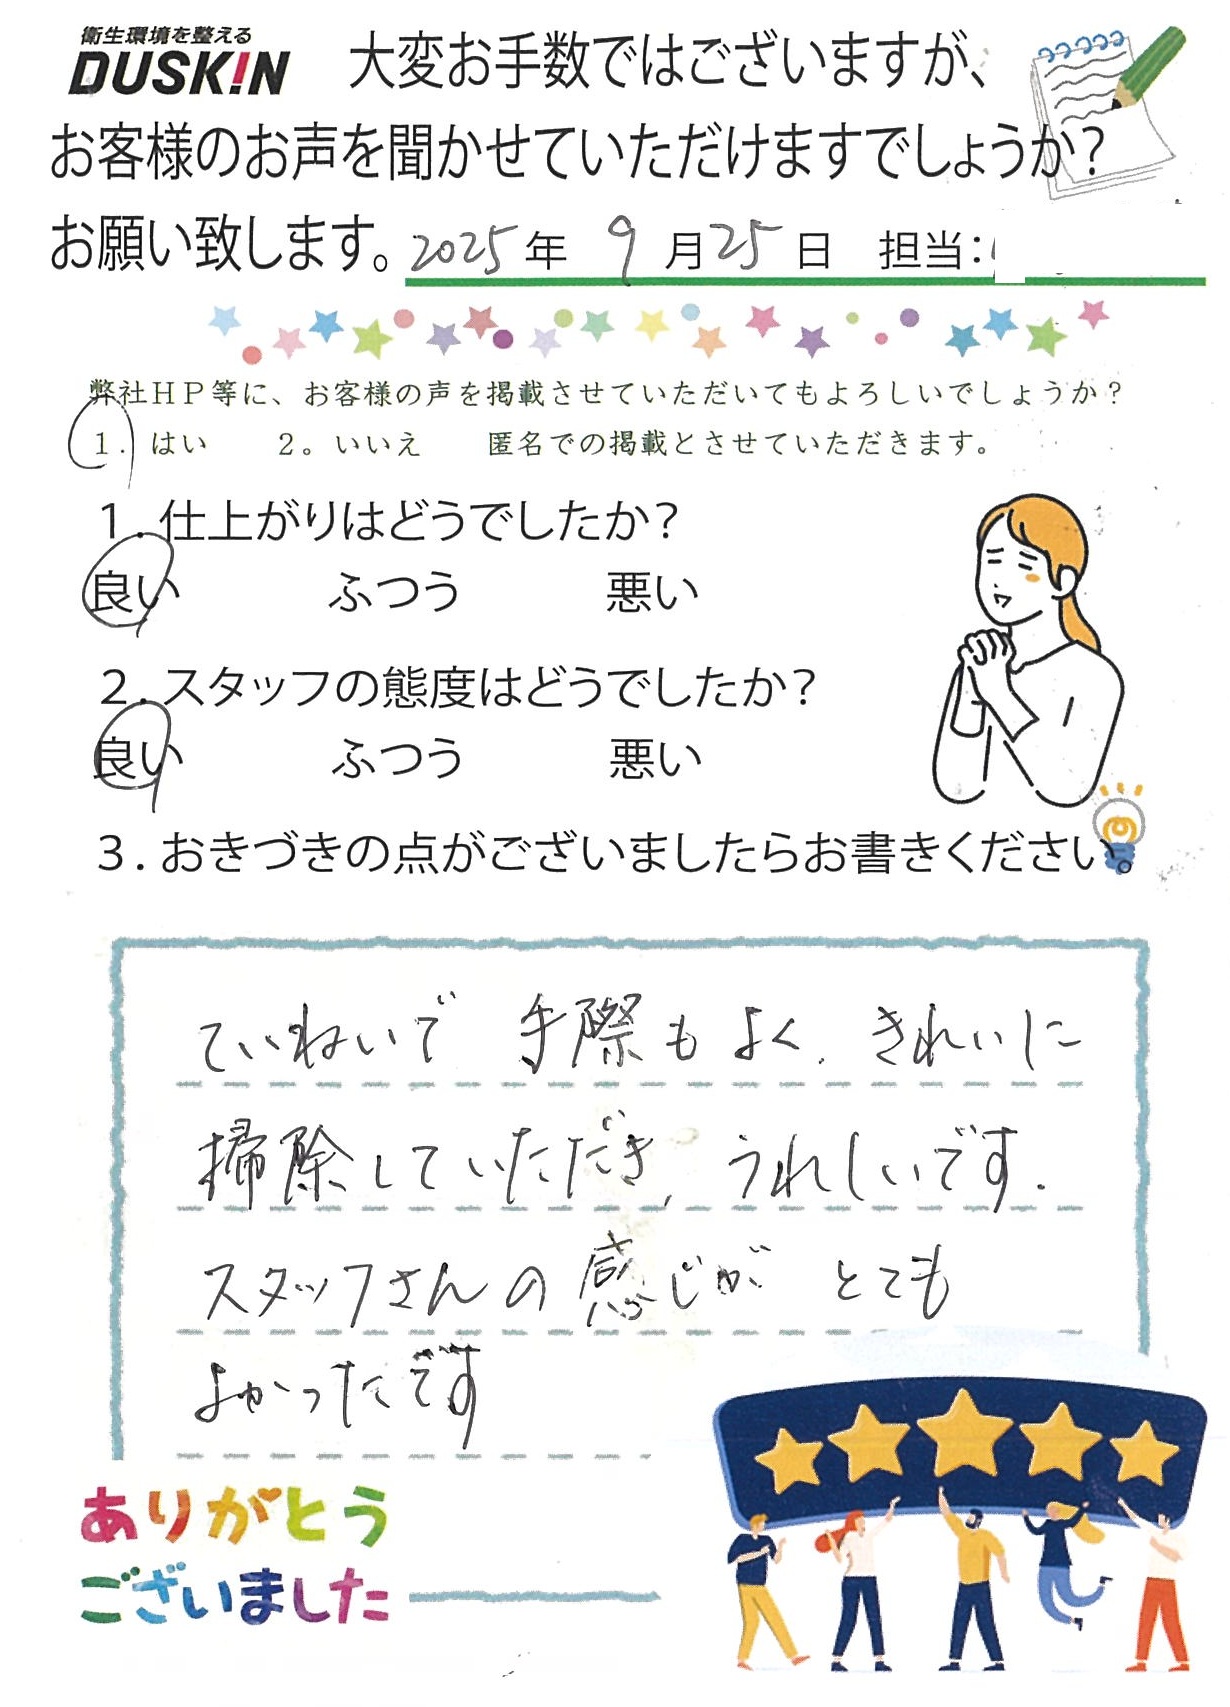 衛生環境を整える
DUSKIN
大変お手数ではございますが、
お客様のお声を聞かせていただけますでしょうか？
お願い致します。2025年 9月25日 担当：
弊社ＨＰ等に、お客様の声を掲載させていただいてもよろしいでしょうか？
１．はい ２。いいえ 匿名での掲載とさせていただきます。
１．仕上がりはどうでしたか？
良い ふつう 悪い
２．スタッフの態度はどうでしたか？
良い ふつう 悪い
３．おきづきの点がございましたらお書きください。
ていねいで 手際もよく、きれいに
掃除していただき、うれしいです.
スタッフさんの感じが とても
よかったです
ありがとう
ございました